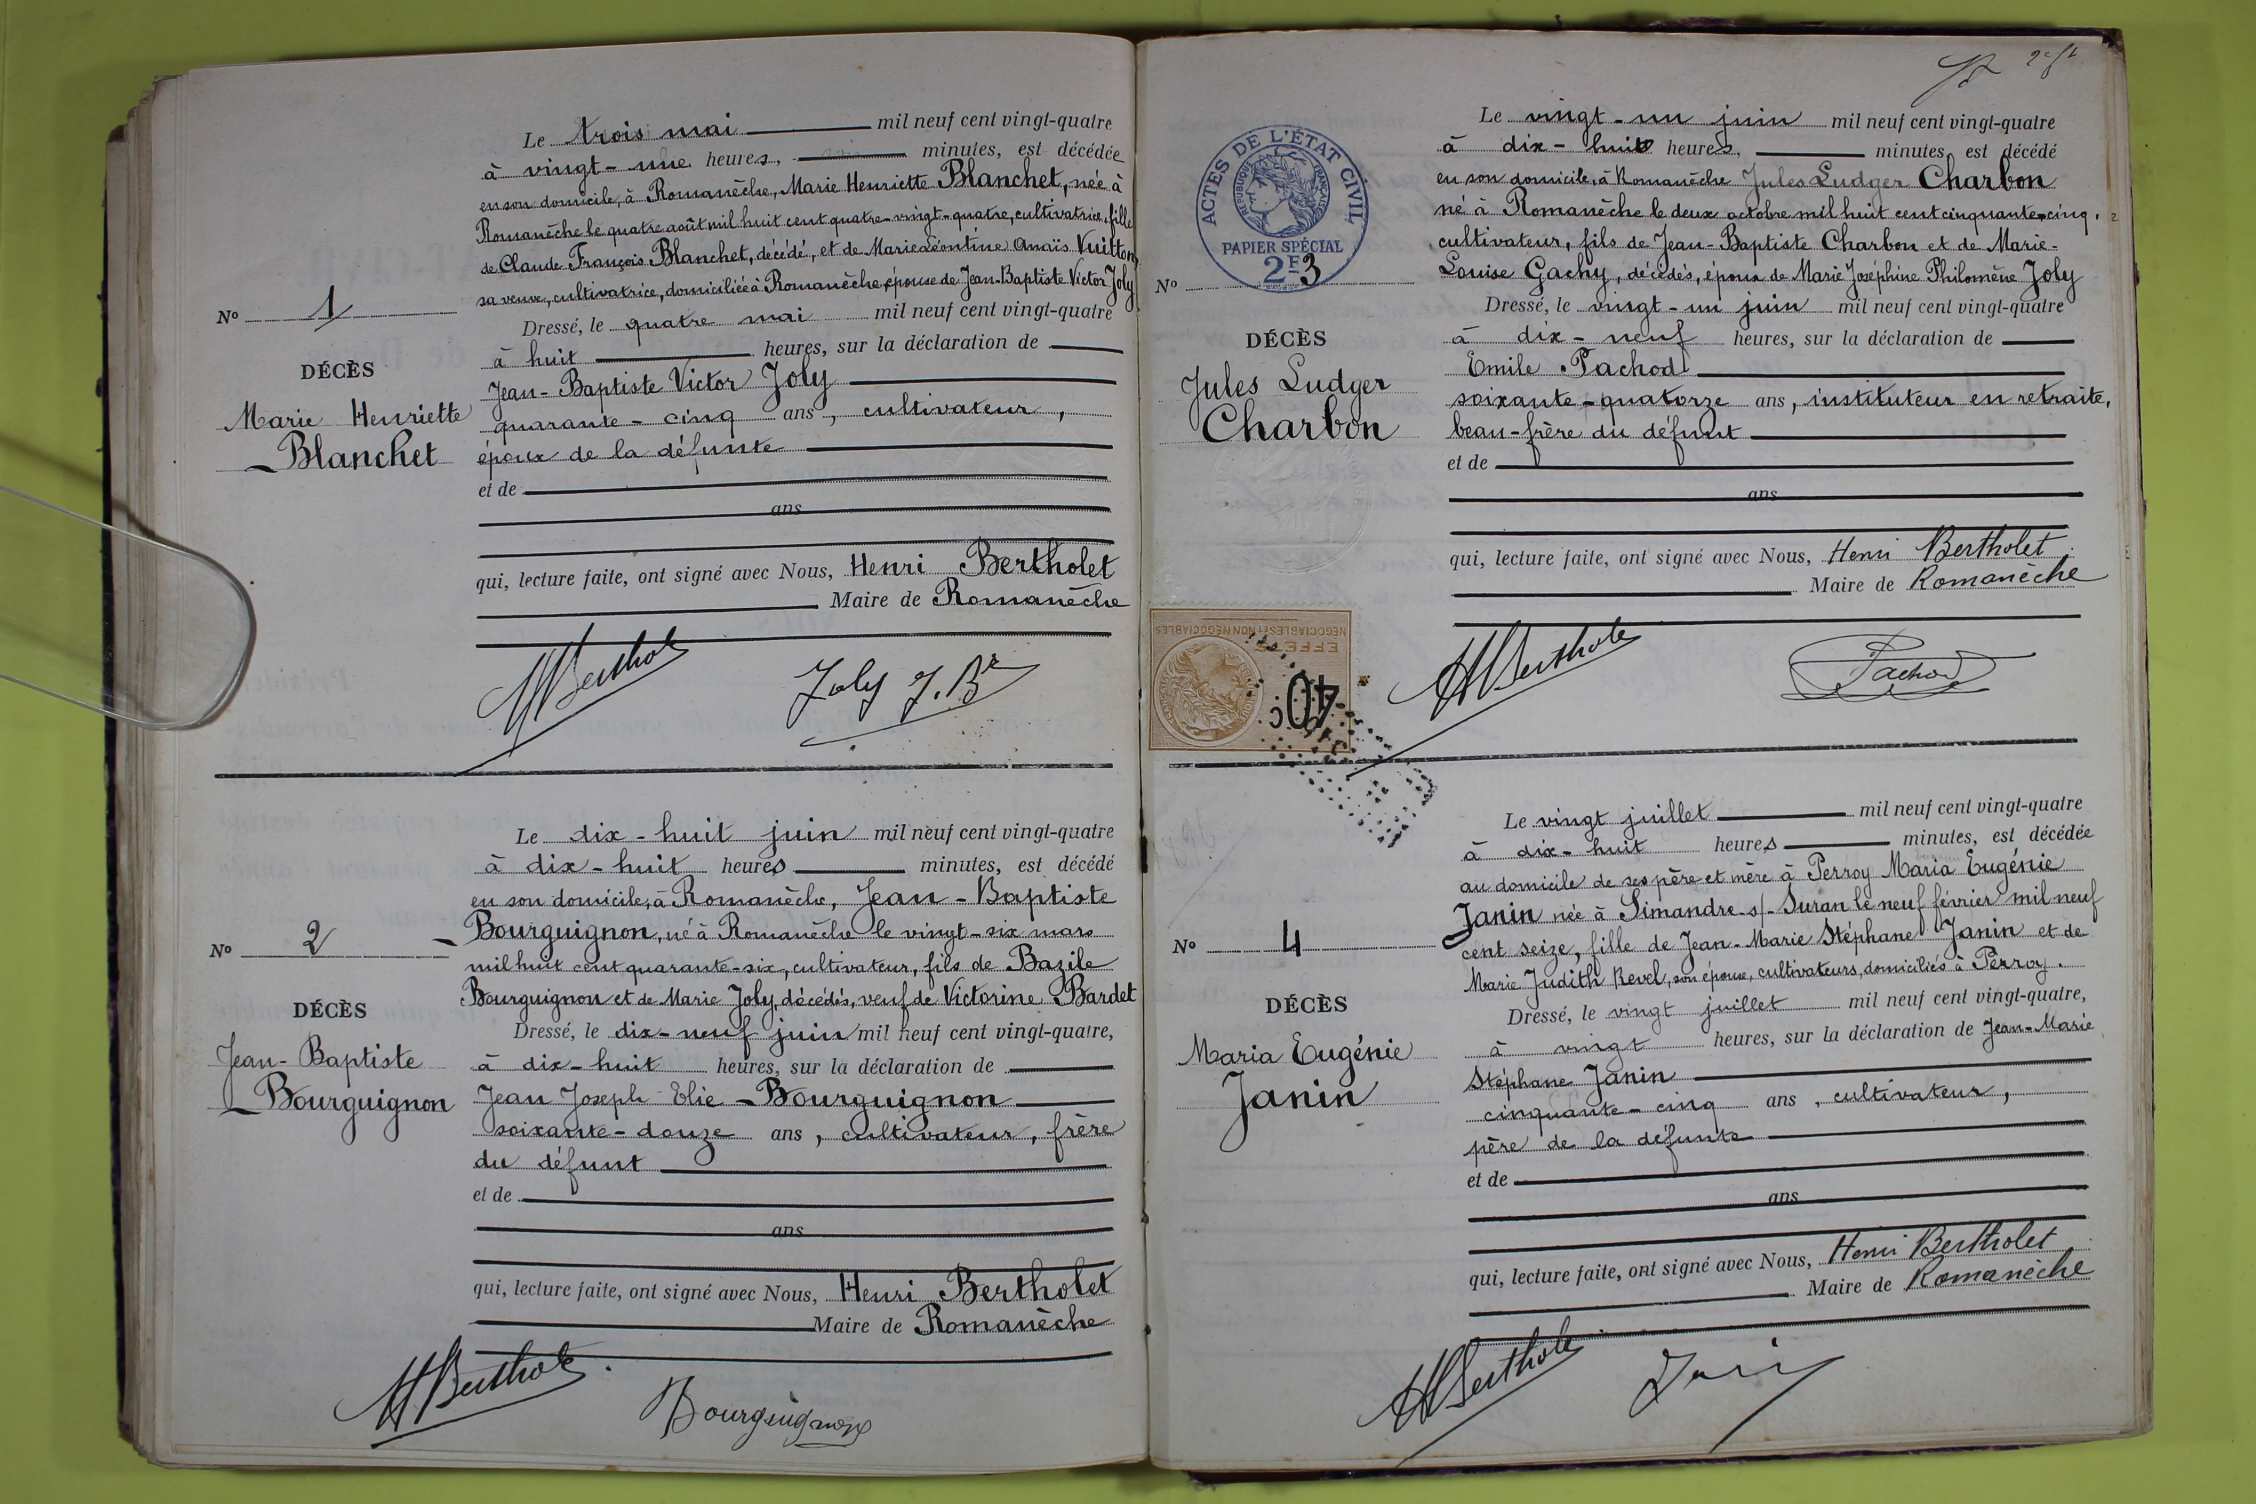 Le trois mai mil neuf cent vingt-quatre
à vingt-une heures, minutes, est décédée
en son domicile, à Romanèche, Marie Henriette Blanchet, née à
Romanèche le quatre août mil huit cent quatre-vingt-quatre, cultivatrice, fille
de Claude François Blanchet, décédé, et de Marie Léontine Anaïs Vuitton,
sa veuve, cultivatrice, domiciliée à Romanèche, épouse de Jean-Baptiste Victor Joly
Nº 1
Dressé, le quatre mai mil neuf cent vingt-quatre
à huit heures, sur la déclaration de
DÉCÈS
Jean-Baptiste Victor Joly
Marie Henriette
quarante-cinq ans, cultivateur,
Blanchet
époux de la défunte
et de
ans
qui, lecture faite, ont signé avec Nous, Henri Bertholet
Maire de Romanèche
HBertholet
Joly J. Bte
Le dix-huit juin mil neuf cent vingt-quatre
à dix-huit heures minutes, est décédé
en son domicile, à Romanèche, Jean-Baptiste
Bourguignon, né à Romanèche le vingt-six mars
Nº 2
mil huit cent quarante-six, cultivateur, fils de Bazile
Bourguignon et de Marie Joly, décédés, veuf de Victorine Bardet
DÉCÈS
Dressé, le dix-neuf juin mil neuf cent vingt-quatre,
Jean-Baptiste
à dix-huit heures, sur la déclaration de
Bourguignon
Jean Joseph Elie Bourguignon
soixante-douze ans, cultivateur, frère
du défunt
et de
ans
qui, lecture faite, ont signé avec Nous, Henri Bertholet
Maire de Romanèche
HBertholet
Bourguignon
ACTES DE L'ÉTAT CIVIL
RÉPUBLIQUE FRANÇAISE
PAPIER SPÉCIAL
2F
Le vingt-un juin mil neuf cent vingt-quatre
à dix-huit heures, minutes, est décédé
en son domicile, à Romanèche Jules Ludger Charbon
né à Romanèche le deux octobre mil huit cent cinquante-cinq,
cultivateur, fils de Jean-Baptiste Charbon et de Marie-
Louise Gachy, décédés, époux de Marie Joséphine Philomène Joly
Nº 3
Dressé, le vingt-un juin mil neuf cent vingt-quatre
DÉCÈS
à dix-neuf heures, sur la déclaration de
Jules Ludger
Emile Pachod
Charbon
soixante-quatorze ans, instituteur en retraite,
beau-frère du défunt
et de
ans
qui, lecture faite, ont signé avec Nous, Henri Bertholet
Maire de Romanèche
NÉGOCIABLES ET NON NÉGOCIABLES
EFFETS
40c
HBertholet
Pachod
Le vingt juillet mil neuf cent vingt-quatre
à dix-huit heures minutes, est décédée
au domicile de ses père et mère à Perroy Maria Eugénie
Janin née à Simandre-s/-Suran le neuf février mil neuf
Nº 4
cent seize, fille de Jean-Marie Stéphane Janin et de
Marie Judith Revel, son épouse, cultivateurs, domiciliés à Perroy.
DÉCÈS
Dressé, le vingt juillet mil neuf cent vingt-quatre,
Maria Eugénie
à vingt heures, sur la déclaration de Jean-Marie
Janin
Stéphane Janin
cinquante-cinq ans, cultivateur,
père de la défunte
et de
ans
qui, lecture faite, ont signé avec Nous, Henri Bertholet
Maire de Romanèche
HBertholet
Janin